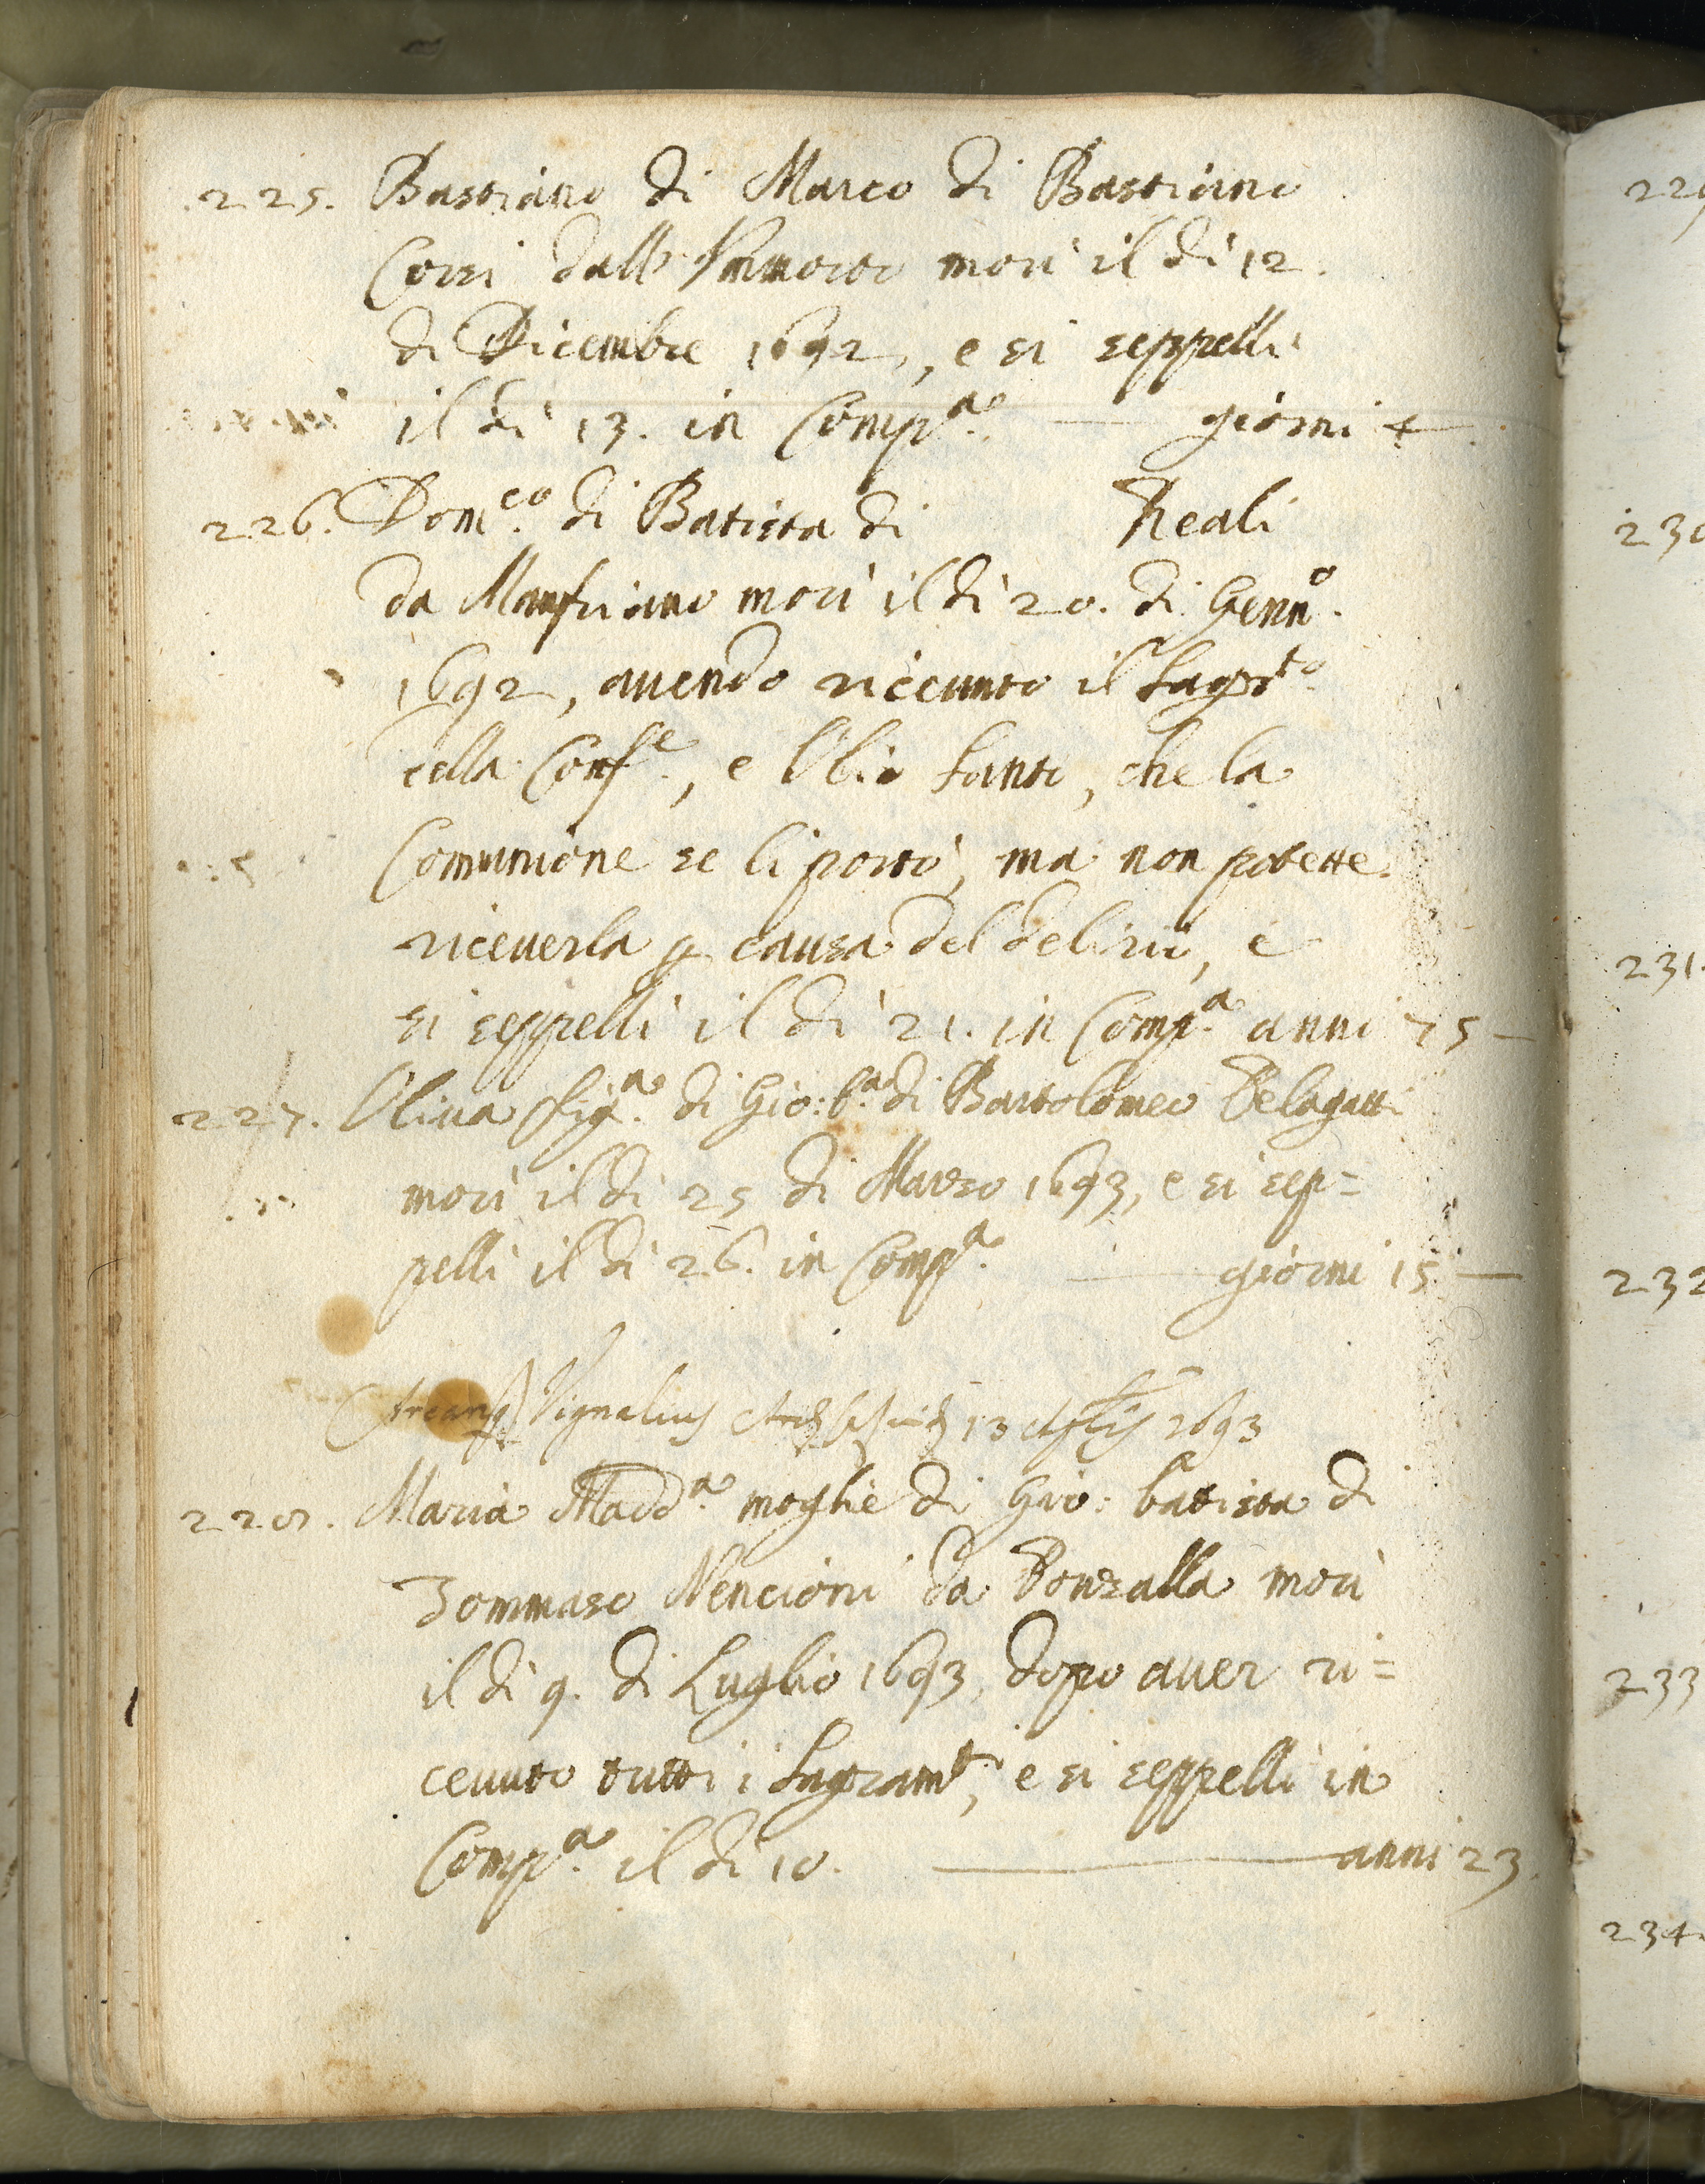 225. Bastiano di Marco di Bastiano
Corsi dall' mori il dì 12.
di Dicembre 1692, e si seppelli
il dì 13. in Compª. giorni 4
226. Domco. di Batista di Reali
da Manfriano mori il dì 20. di Genno.
1692, auendo riceuuto il Sagrto.
della Confe., e l'Olio Santo, che la
Comunione se li portò, ma non potette
riceuerla p causa del delirio, e
si seppelli il dì 21. in Compª. anni 75
227. Oliua figª. di Gio: bª. di Bartolomeo Pelagatti
mori il dì 25 di Marzo 1693, e si sep=
pelli il dì 26. in Compª. giorni 15
Vignalius 13 1693
228. Maria Maddª. moglie di Gio: batista di
Tommaso Nencioni da Ponzalla mori
il dì 9. di Luglio 1693, dopo auer ri=
ceuuto tutti i Sagramti, e si seppelli in
Compª. il dì 10. anni 23
229
230
231.
232
233
234.